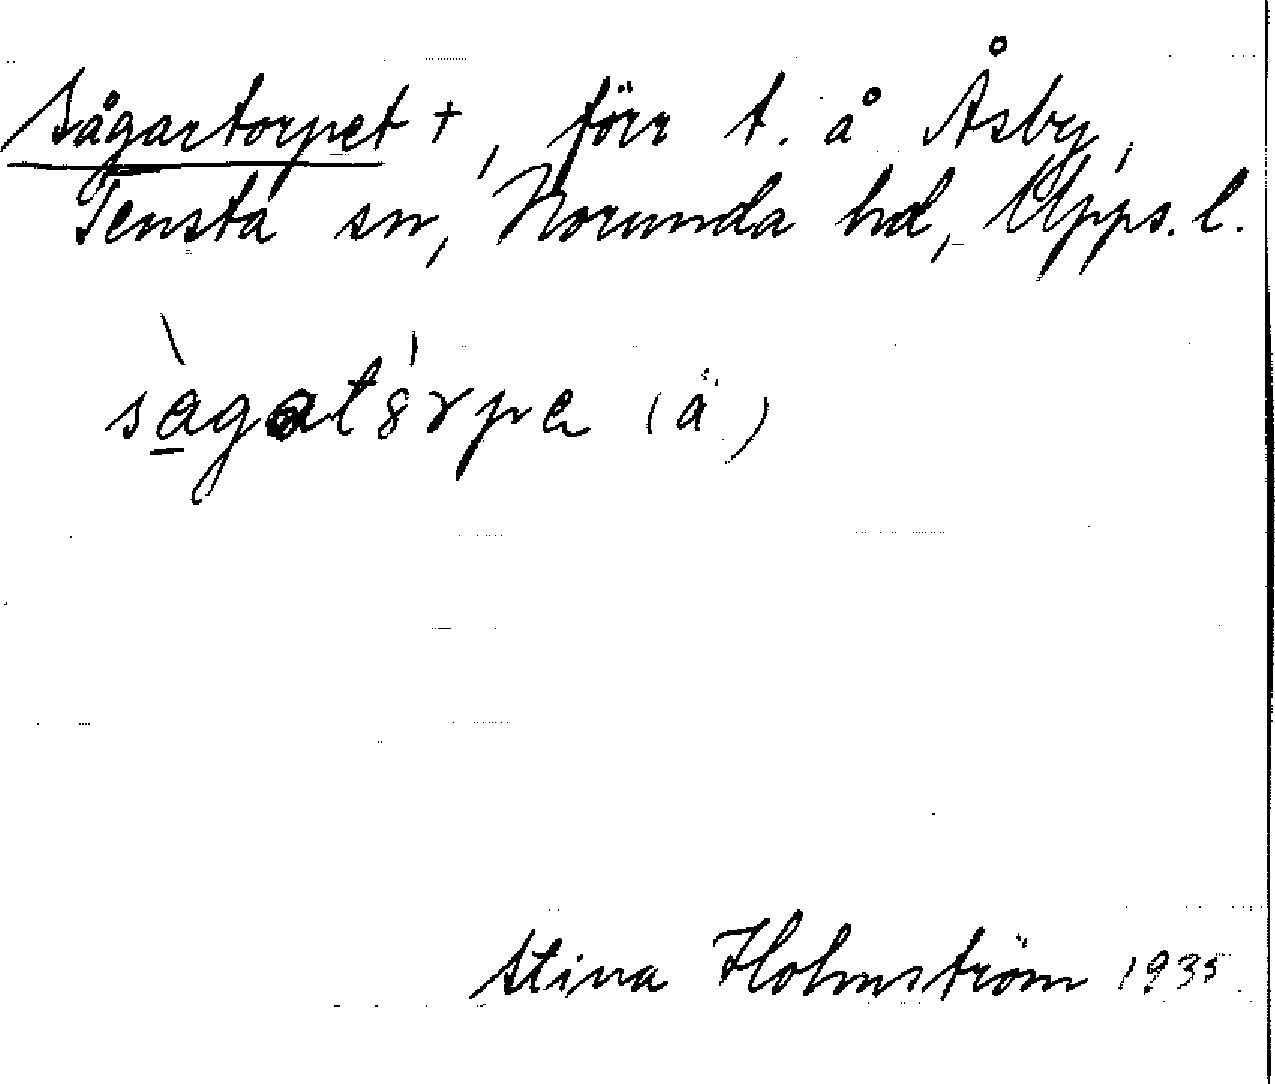 Sågartorpet +, förr t. å Åsby,
Tensta sn, Norunda hd, Upps. l.
sàgatórpa (ä)
Stina Holmström 1935